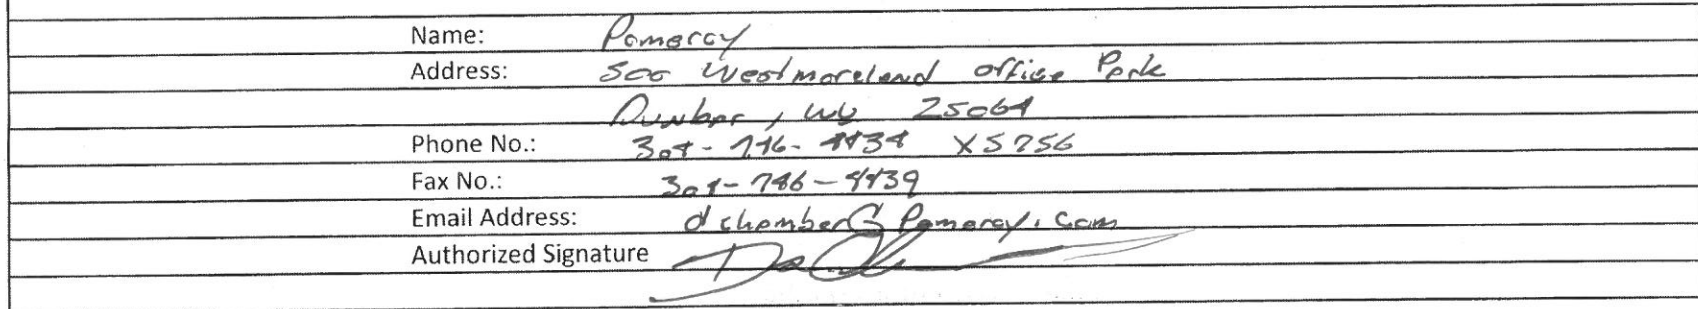 Name: Pomeroy
Address: 500 Westmoreland Office Park
Dunbar, WV 25064
Phone No.: 304-746-4434 X5756
Fax No.: 304-746-4439
Email Address: dchamber@Pomeroy.com
Authorized Signature